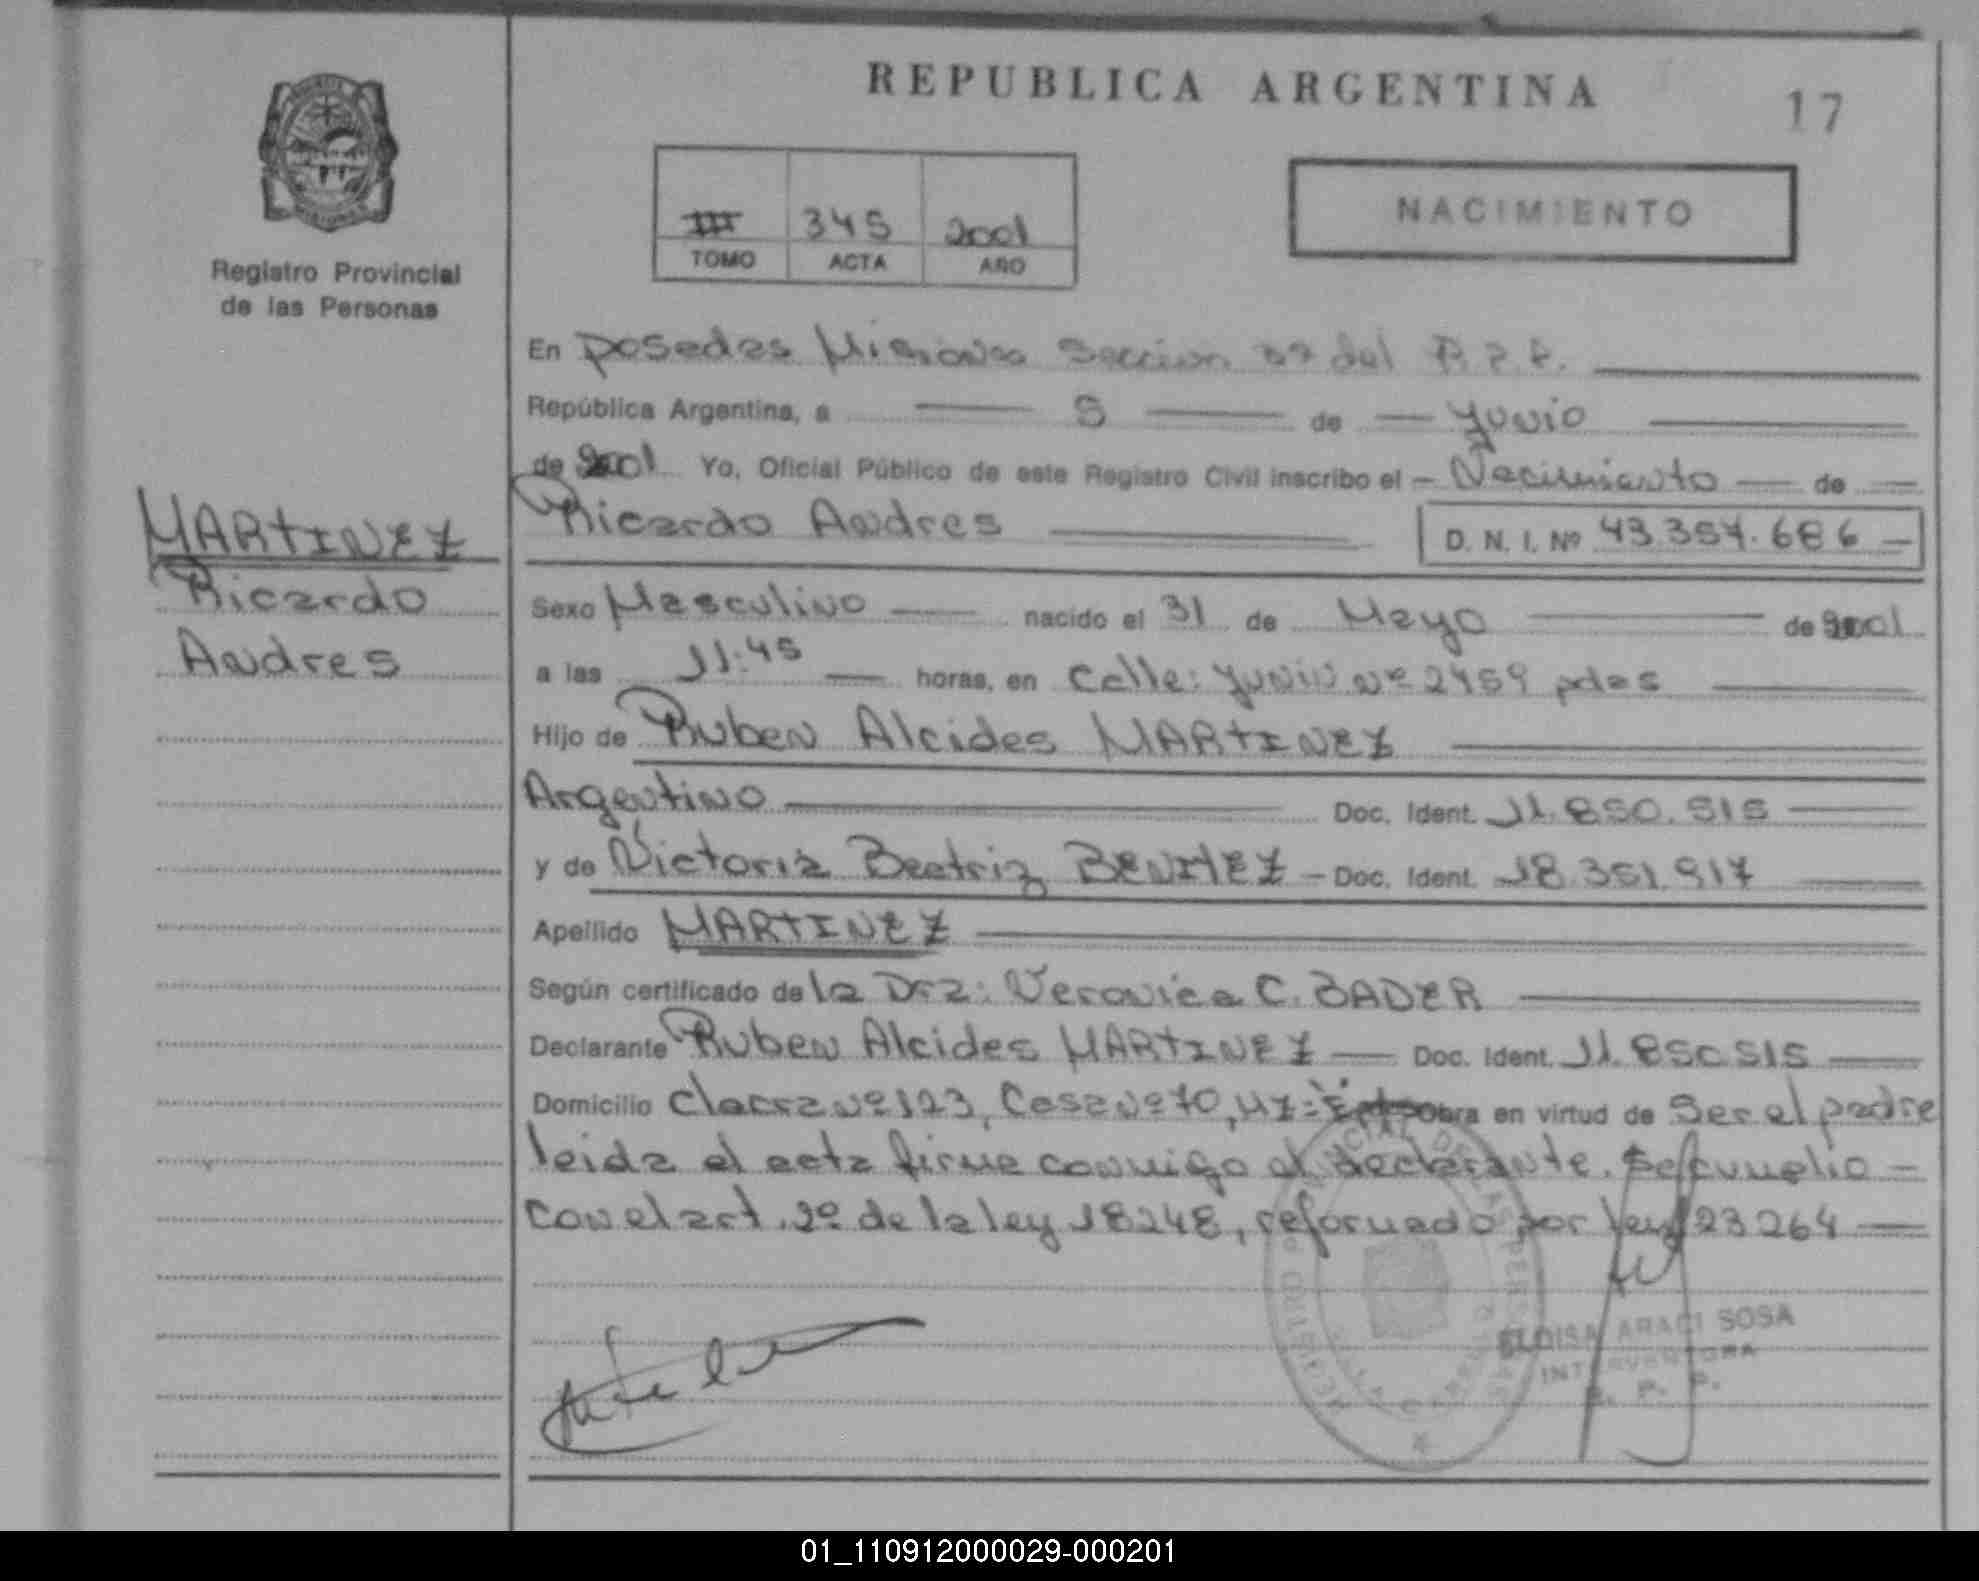 REPUBLICA ARGENTINA
17
III 345 2001
TOMO ACTA AÑO
NACIMIENTO
Registro Provincial
de las Personas
En Posadas Misiones Seccion del R.P.P.
República Argentina, a 5 de Junio
de 2001 Yo, Oficial Público de este Registro Civil inscribo el Nacimiento de
Ricardo Andres D. N. I. Nº 43.357.686
MARTINEZ
Ricardo
Andres
Sexo Masculino nacido el 31 de Mayo de 2001
a las 11:45 horas, en Calle: Junin nº 2459 pdas
Hijo de Ruben Alcides MARTINEZ
Argentino Doc. Ident. 11.850.515
y de Victoria Beatriz BENITEZ - Doc. Ident. 18.351.917
Apellido MARTINEZ
Según certificado de la Dra: Veronica C. BADER
Declarante Ruben Alcides MARTINEZ Doc. Ident. 11.850515
Domicilio Chacra nº 123, Casa nº 70, Mz: Obra en virtud de Ser el padre
leida el acta firma conmigo el declarante. Se cumplio
con el art. 2º de la ley 18248, reformado por ley 23264
REGISTRO PROVINCIAL DE LAS PERSONAS
ELOISA ARACI SOSA
INTERVENTORA
R. P. P.
01_110912000029-000201